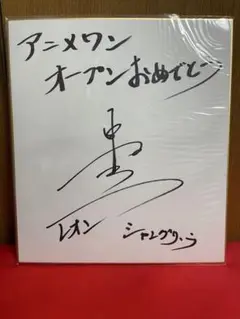 アニメワン
オープンおめでとう
レオン シャングリラ